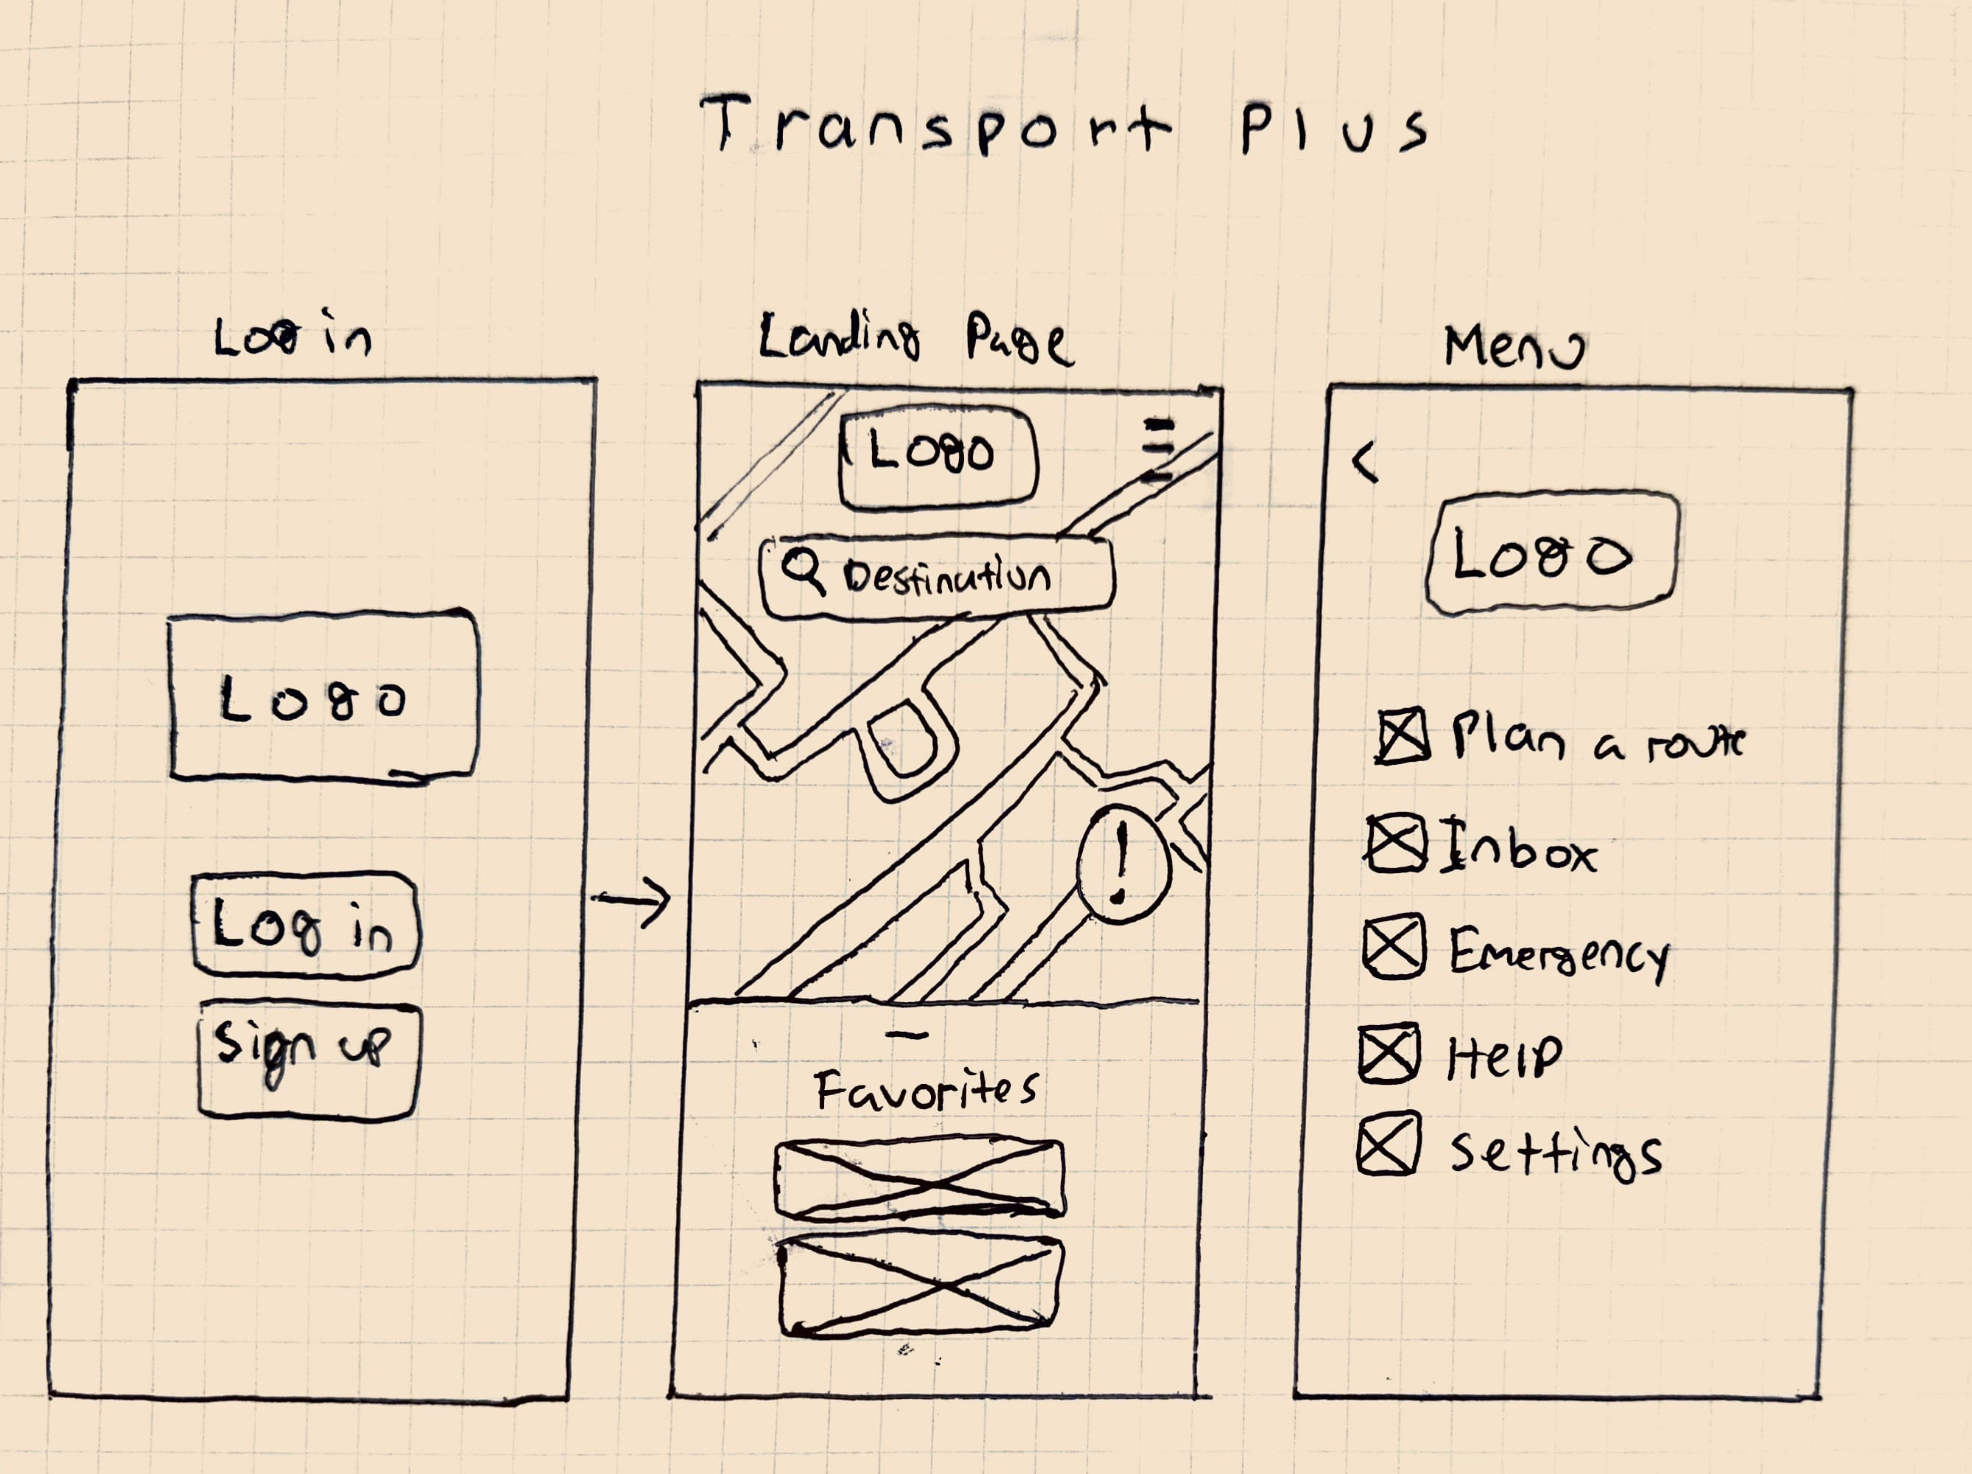 Transport Plus
Log in
Logo
Log in
Sign up
Landing Page
Logo
Destination
!
Favorites
Menu
<
Logo
Plan a route
Inbox
Emergency
Help
settings